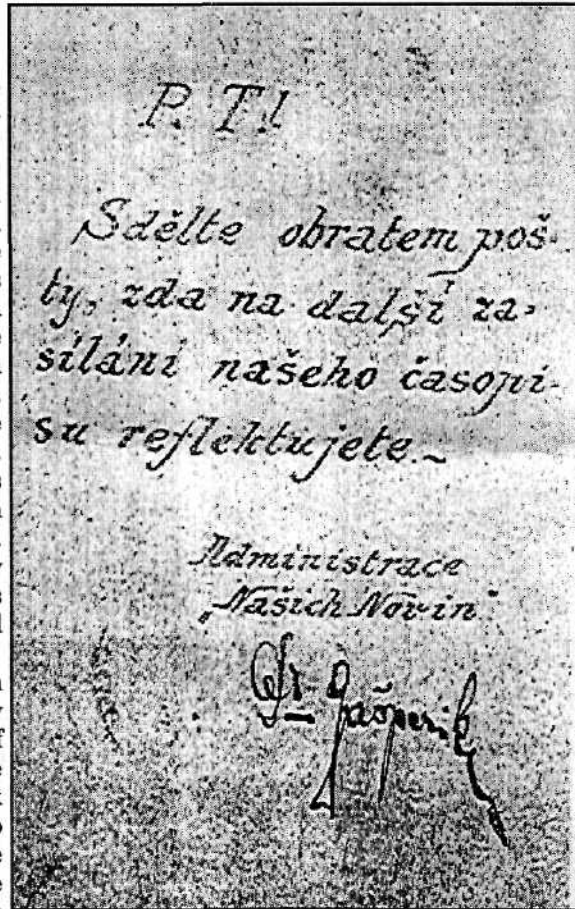 P. T.!
Sdělte obratem poš-
ty, zda na další za-
sílání našeho časopi-
su reflektujete.~
Administrace
„Našich Novin"
Dr. Gašperik